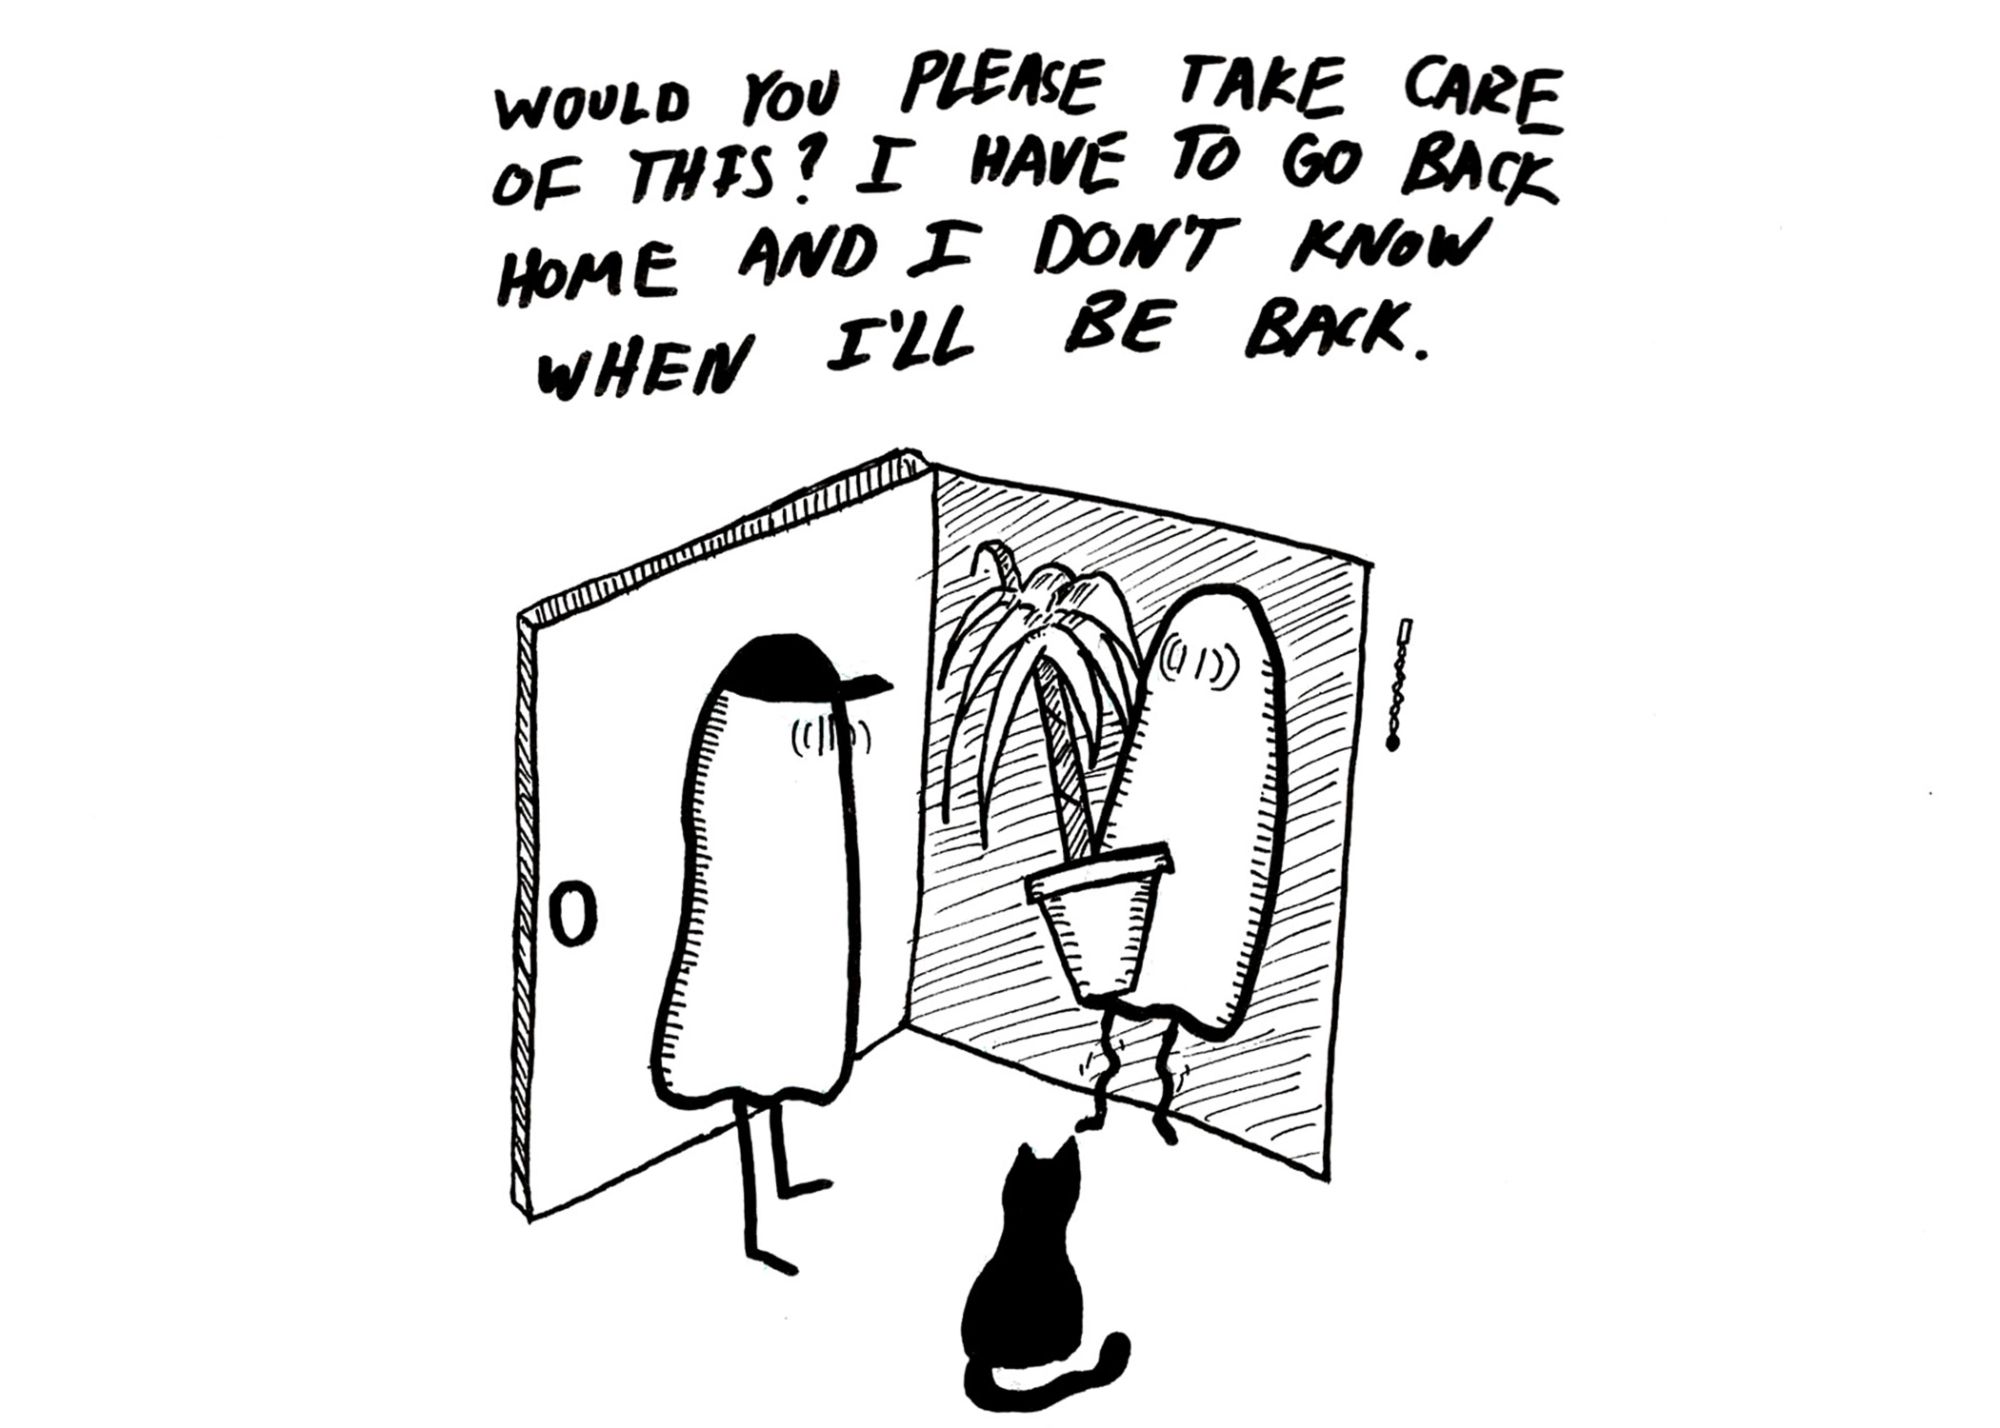 WOULD YOU PLEASE TAKE CARE
OF THIS? I HAVE TO GO BACK
HOME AND I DON'T KNOW
WHEN I'LL BE BACK.